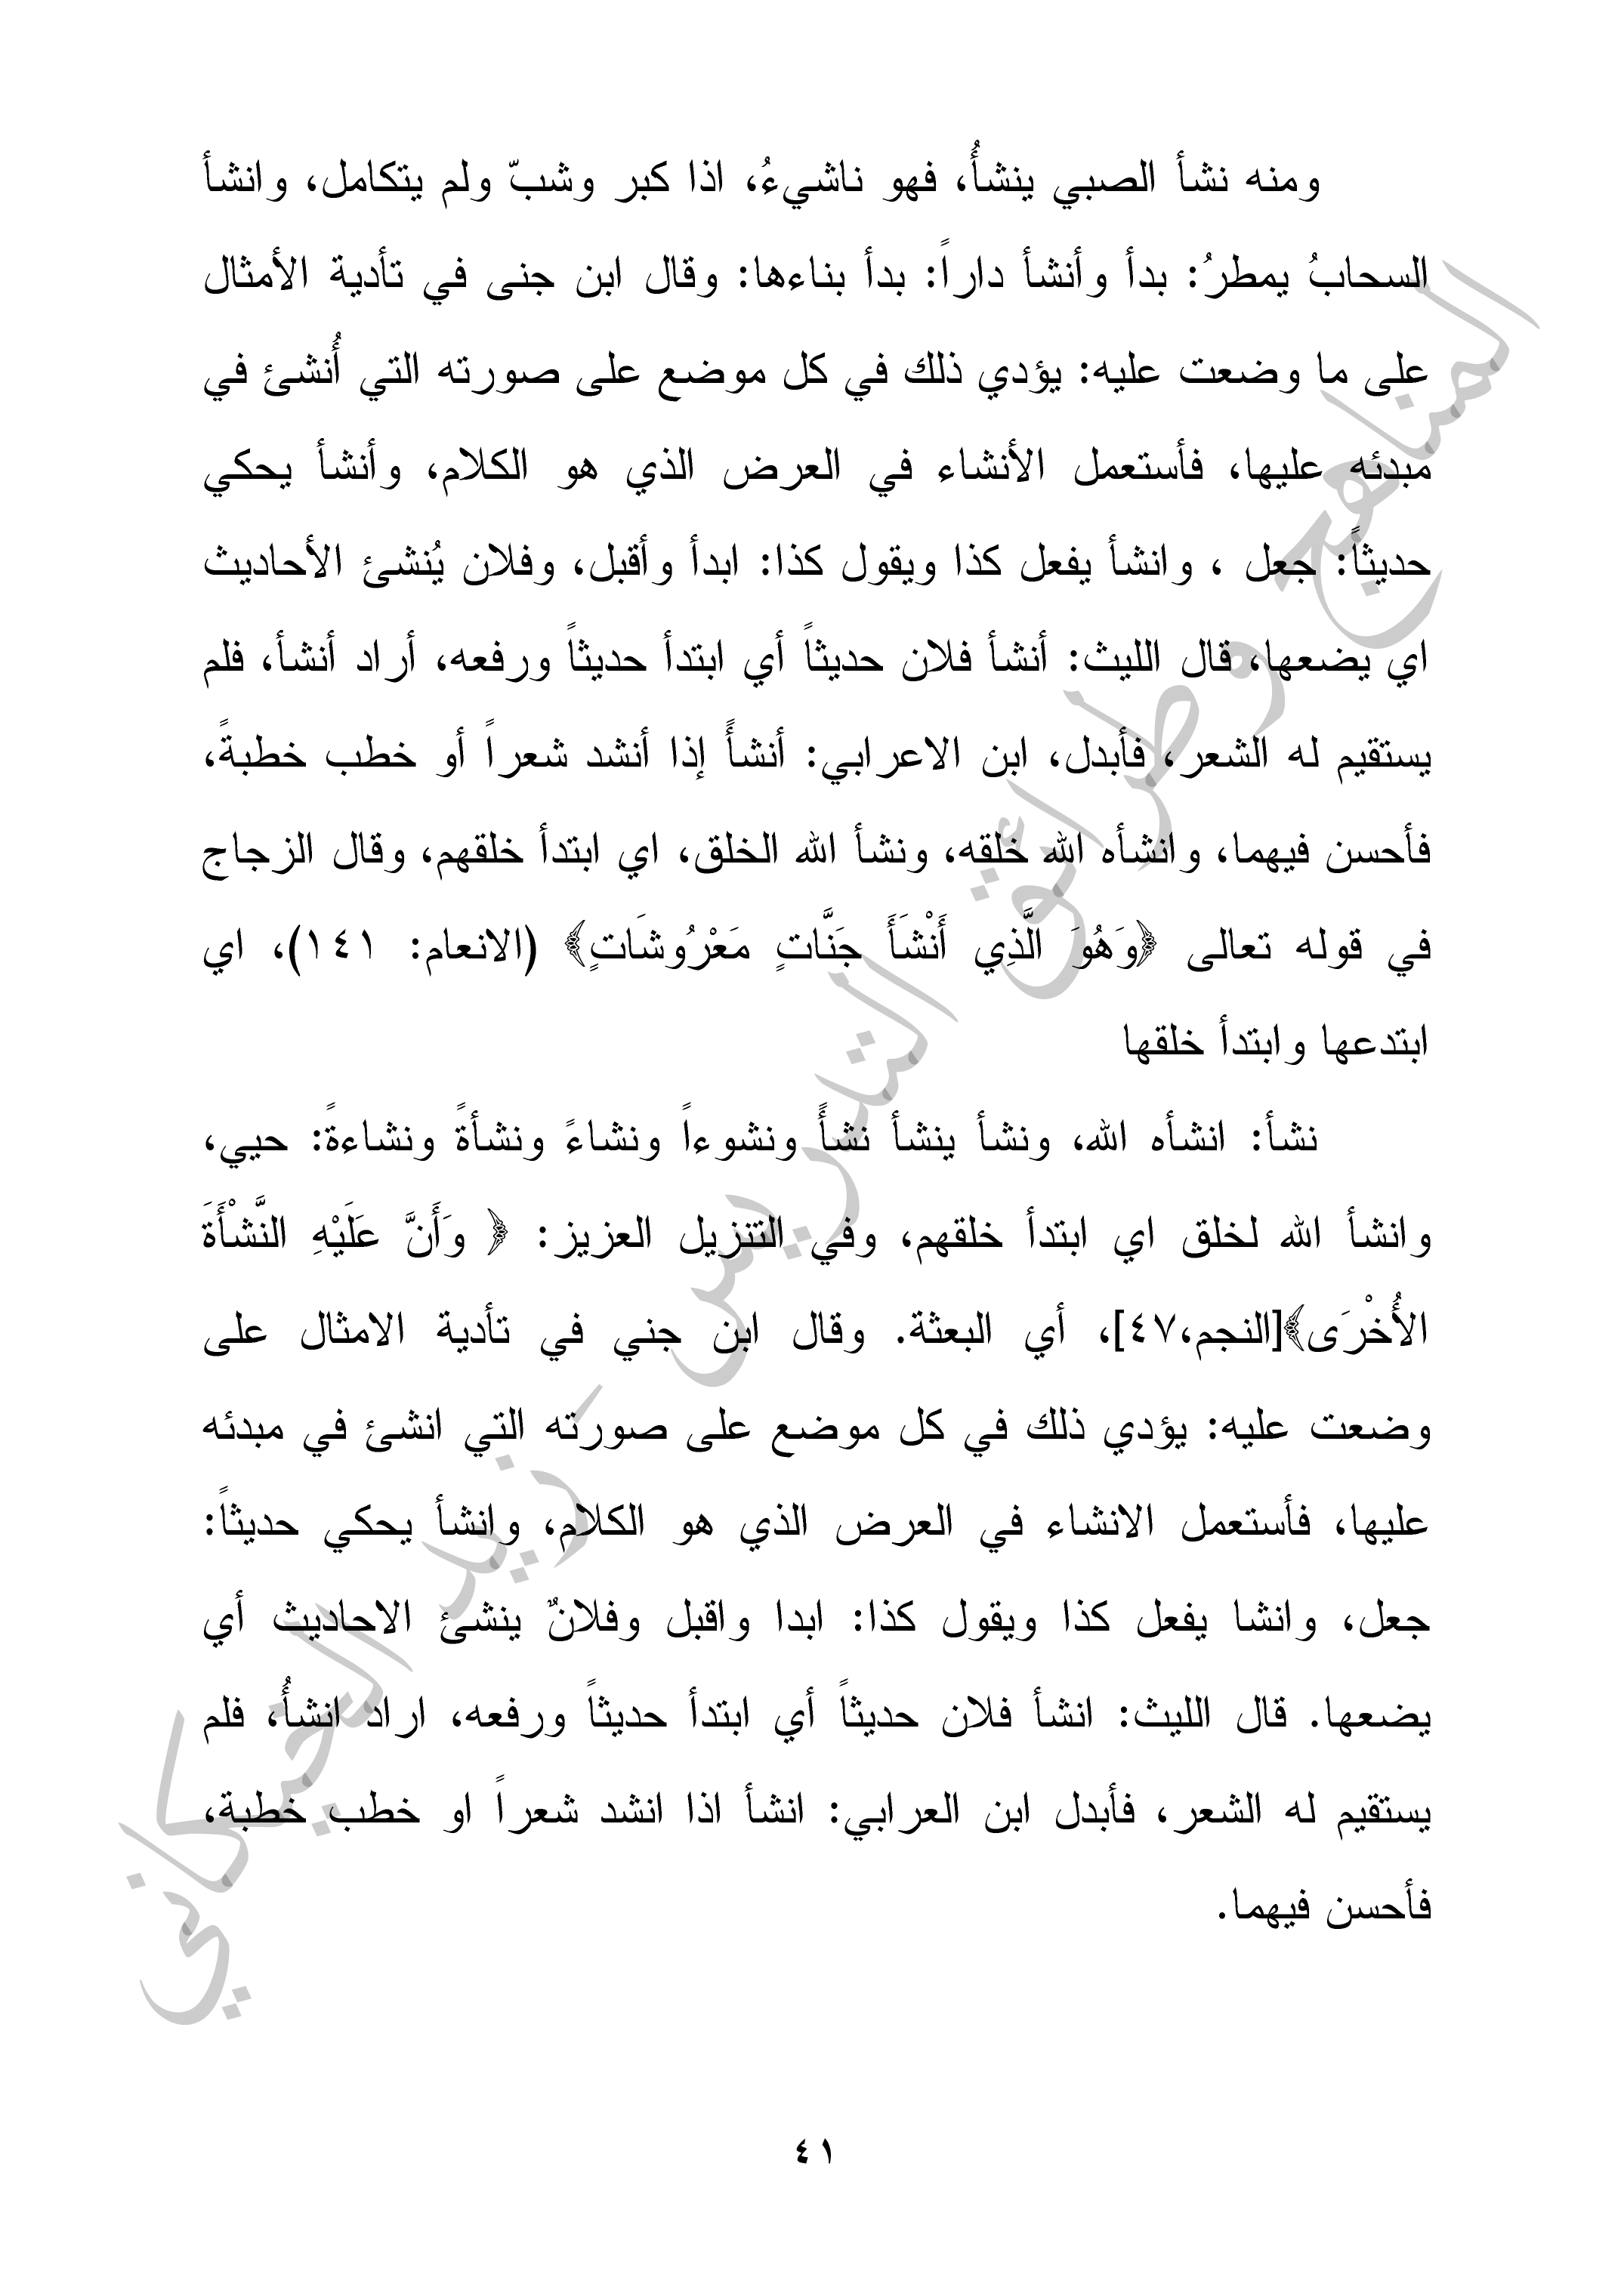 ومنه نشأ الصبي ينشأُ، فهو ناشيءُ، اذا كبر وشبّ ولم يتكامل، وانشأ
السحابُ يمطرُ: بدأ وأنشأ داراً: بدأ بناءها: وقال ابن جنى في تأدية الأمثال
على ما وضعت عليه: يؤدي ذلك في كل موضع على صورته التي أُنشئ في
مبدئه عليها، فأستعمل الأنشاء في العرض الذي هو الكلام، وأنشأ يحكي
حديثاً: جعل ، وانشأ يفعل كذا ويقول كذا: ابدأ وأقبل، وفلان يُنشئ الأحاديث
اي يضعها، قال الليث: أنشأ فلان حديثاً أي ابتدأ حديثاً ورفعه، أراد أنشأ، فلم
يستقيم له الشعر، فأبدل، ابن الاعرابي: أنشأً إذا أنشد شعراً أو خطب خطبةً،
فأحسن فيهما، وانشأه الله خلقه، ونشأ الله الخلق، اي ابتدأ خلقهم، وقال الزجاج
في قوله تعالى ﴿وَهُوَ الَّذِي أَنْشَأَ جَنَّاتٍ مَعْرُوشَاتٍ﴾ (الانعام: ١٤١)، اي
ابتدعها وابتدأ خلقها
نشأ: انشأه الله، ونشأ ينشأ نشأً ونشوءاً ونشاءً ونشأةً ونشاءةً: حيي،
وانشأ الله لخلق اي ابتدأ خلقهم، وفي التنزيل العزيز: ﴿ وَأَنَّ عَلَيْهِ النَّشْأَةَ
الأُخْرَى﴾[النجم،٤٧]، أي البعثة. وقال ابن جني في تأدية الامثال على
وضعت عليه: يؤدي ذلك في كل موضع على صورته التي انشئ في مبدئه
عليها، فأستعمل الانشاء في العرض الذي هو الكلام، وانشأ يحكي حديثاً:
جعل، وانشا يفعل كذا ويقول كذا: ابدا واقبل وفلانٌ ينشئ الاحاديث أي
يضعها. قال الليث: انشأ فلان حديثاً أي ابتدأ حديثاً ورفعه، اراد انشأُ، فلم
يستقيم له الشعر، فأبدل ابن العرابي: انشأ اذا انشد شعراً او خطب خطبة،
فأحسن فيهما.
المناهج وطرائق التدريس _ زيد الخيكاني
٤١